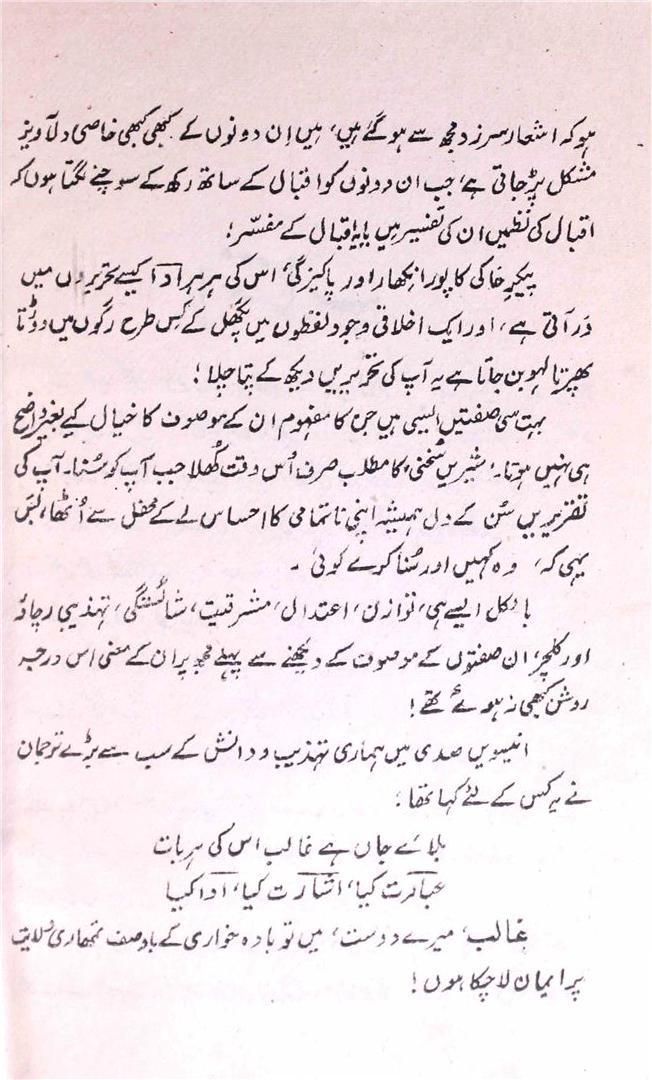 ہو کہ اشعار سرزد مجھ سے ہو گئے ہیں، ہیں اِن دونوں کے کبھی کبھی خاصی دلآویز
مشکل پڑ جاتی ہے، جب ان دونوں کو اقبال کے ساتھ رکھ کے سوچنے لگتا ہوں کہ
اقبال کی نظمیں ان کی تفسیر ہیں یا یہ اقبال کے مفسّر!
پیکرِ خاکی کا پورا نکھار اور پاکیزگی، اس کی ہر ہر ادا کیسے تحریروں میں
دَر آتی ہے، اور ایک اخلاقی وجود لفظوں میں پگھل کے کِس طرح رگوں میں دوڑتا
پھرتا لہو بن جاتا ہے یہ آپ کی تحریریں دیکھ کے پتا چلا!
بہت سی صفتیں ایسی ہیں جن کا مفہوم ان کے موصوف کا خیال کیے بغیر واضح
ہی نہیں ہوتا۔ 'شیریں سخنی' کا مطلب صرف اُس وقت کُھلا جب آپ کو سُنا۔ آپ کی
تقریریں سُن کے دل ہمیشہ اپنی ناتمامی کا احساس لے کے محفل سے اُٹھا، بَس
یہی کہ، وہ کہیں اور سُنا کرے کوئی ۔
بالکل ایسے ہی، توازن، اعتدال، مشرقیت، شائستگی، تہذیبی رچاؤ
اور کلچر، ان صفتوں کے موصوف کے دیکھنے سے پہلے مجھ پر ان کے معنی اس درجہ
روشن کبھی نہ ہوئے تھے!
انیسویں صدی میں ہماری تہذیب و دانش کے سب سے بڑے ترجمان
نے یہ کس کے لئے کہا تھا:
بلائے جاں ہے غالب اس کی ہر بات
عبارت کیا، اشارت کیا، ادا کیا
غالب، میرے دوست، میں تو بادہ خواری کے باوصف تمھاری ولایت
پر ایمان لا چکا ہوں!